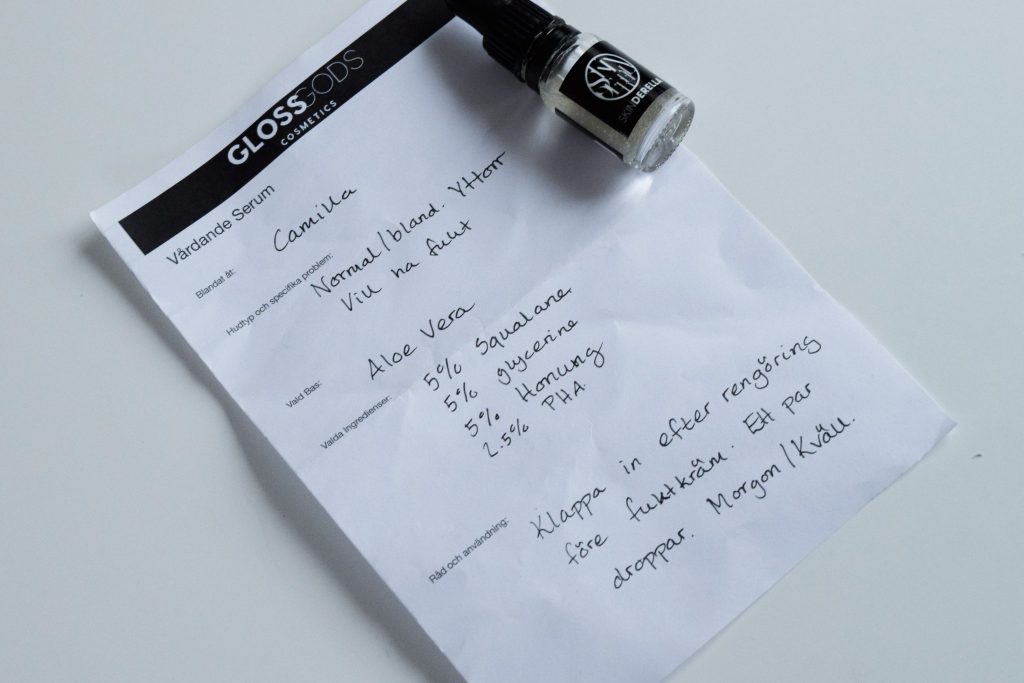 GLOSSGODS
COSMETICS
SKINDERELLA
Vårdande Serum
Blandat åt: Camilla
Hudtyp och specifika problem: Normal/bland. Yttorr
Vill ha fukt
Vald Bas: Aloe Vera
Valda Ingredienser: 5% Squalane.
5% glycerine
5% Honung
2.5% PHA.
Råd och användning: Klappa in efter rengöring
före fuktkräm. Ett par
droppar. Morgon/Kväll.